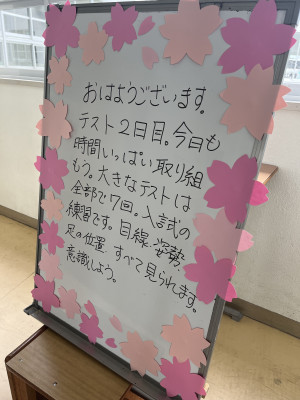 おはようございます。
テスト2日目。今日も
時間いっぱい取り組
もう。大きなテストは
全部で7回。入試の
練習です。目線、姿勢、
足の位置、すべて見られます。
意識しよう。